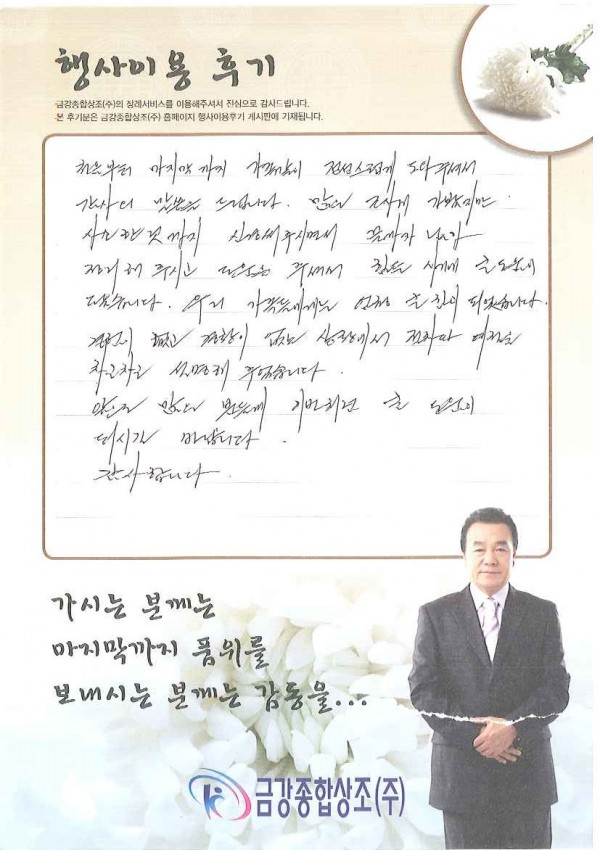 행사이용 후기
금강종합상조(수)의 장례서비스를 이용해주셔서 진심으로 감사드립니다.
본 후기문은 금강종합상조(주) 홈페이지 행사이용후기 게시판에 기재됩니다.
처음부터 마지막까지 가족같이 정성스럽게 도와주셔서
감사의 말씀을 드립니다.
사소한 것까지 신경써주시면서 끝까지
정리해 주시고 도움을 주셔서 힘든 시기에 큰 도움이
되었습니다. 우리 가족들에게는 엄청 큰 힘이 되었습니다.
경험이 없는 상황에서
차근차근 설명해 주었습니다.
앞으로 많은 분들께 이번처럼 큰 도움이
되시길 바랍니다.
감사합니다.
가시는 분께는
마지막까지 품위를
보내시는 분께는 감동을...
금강종합상조(주)